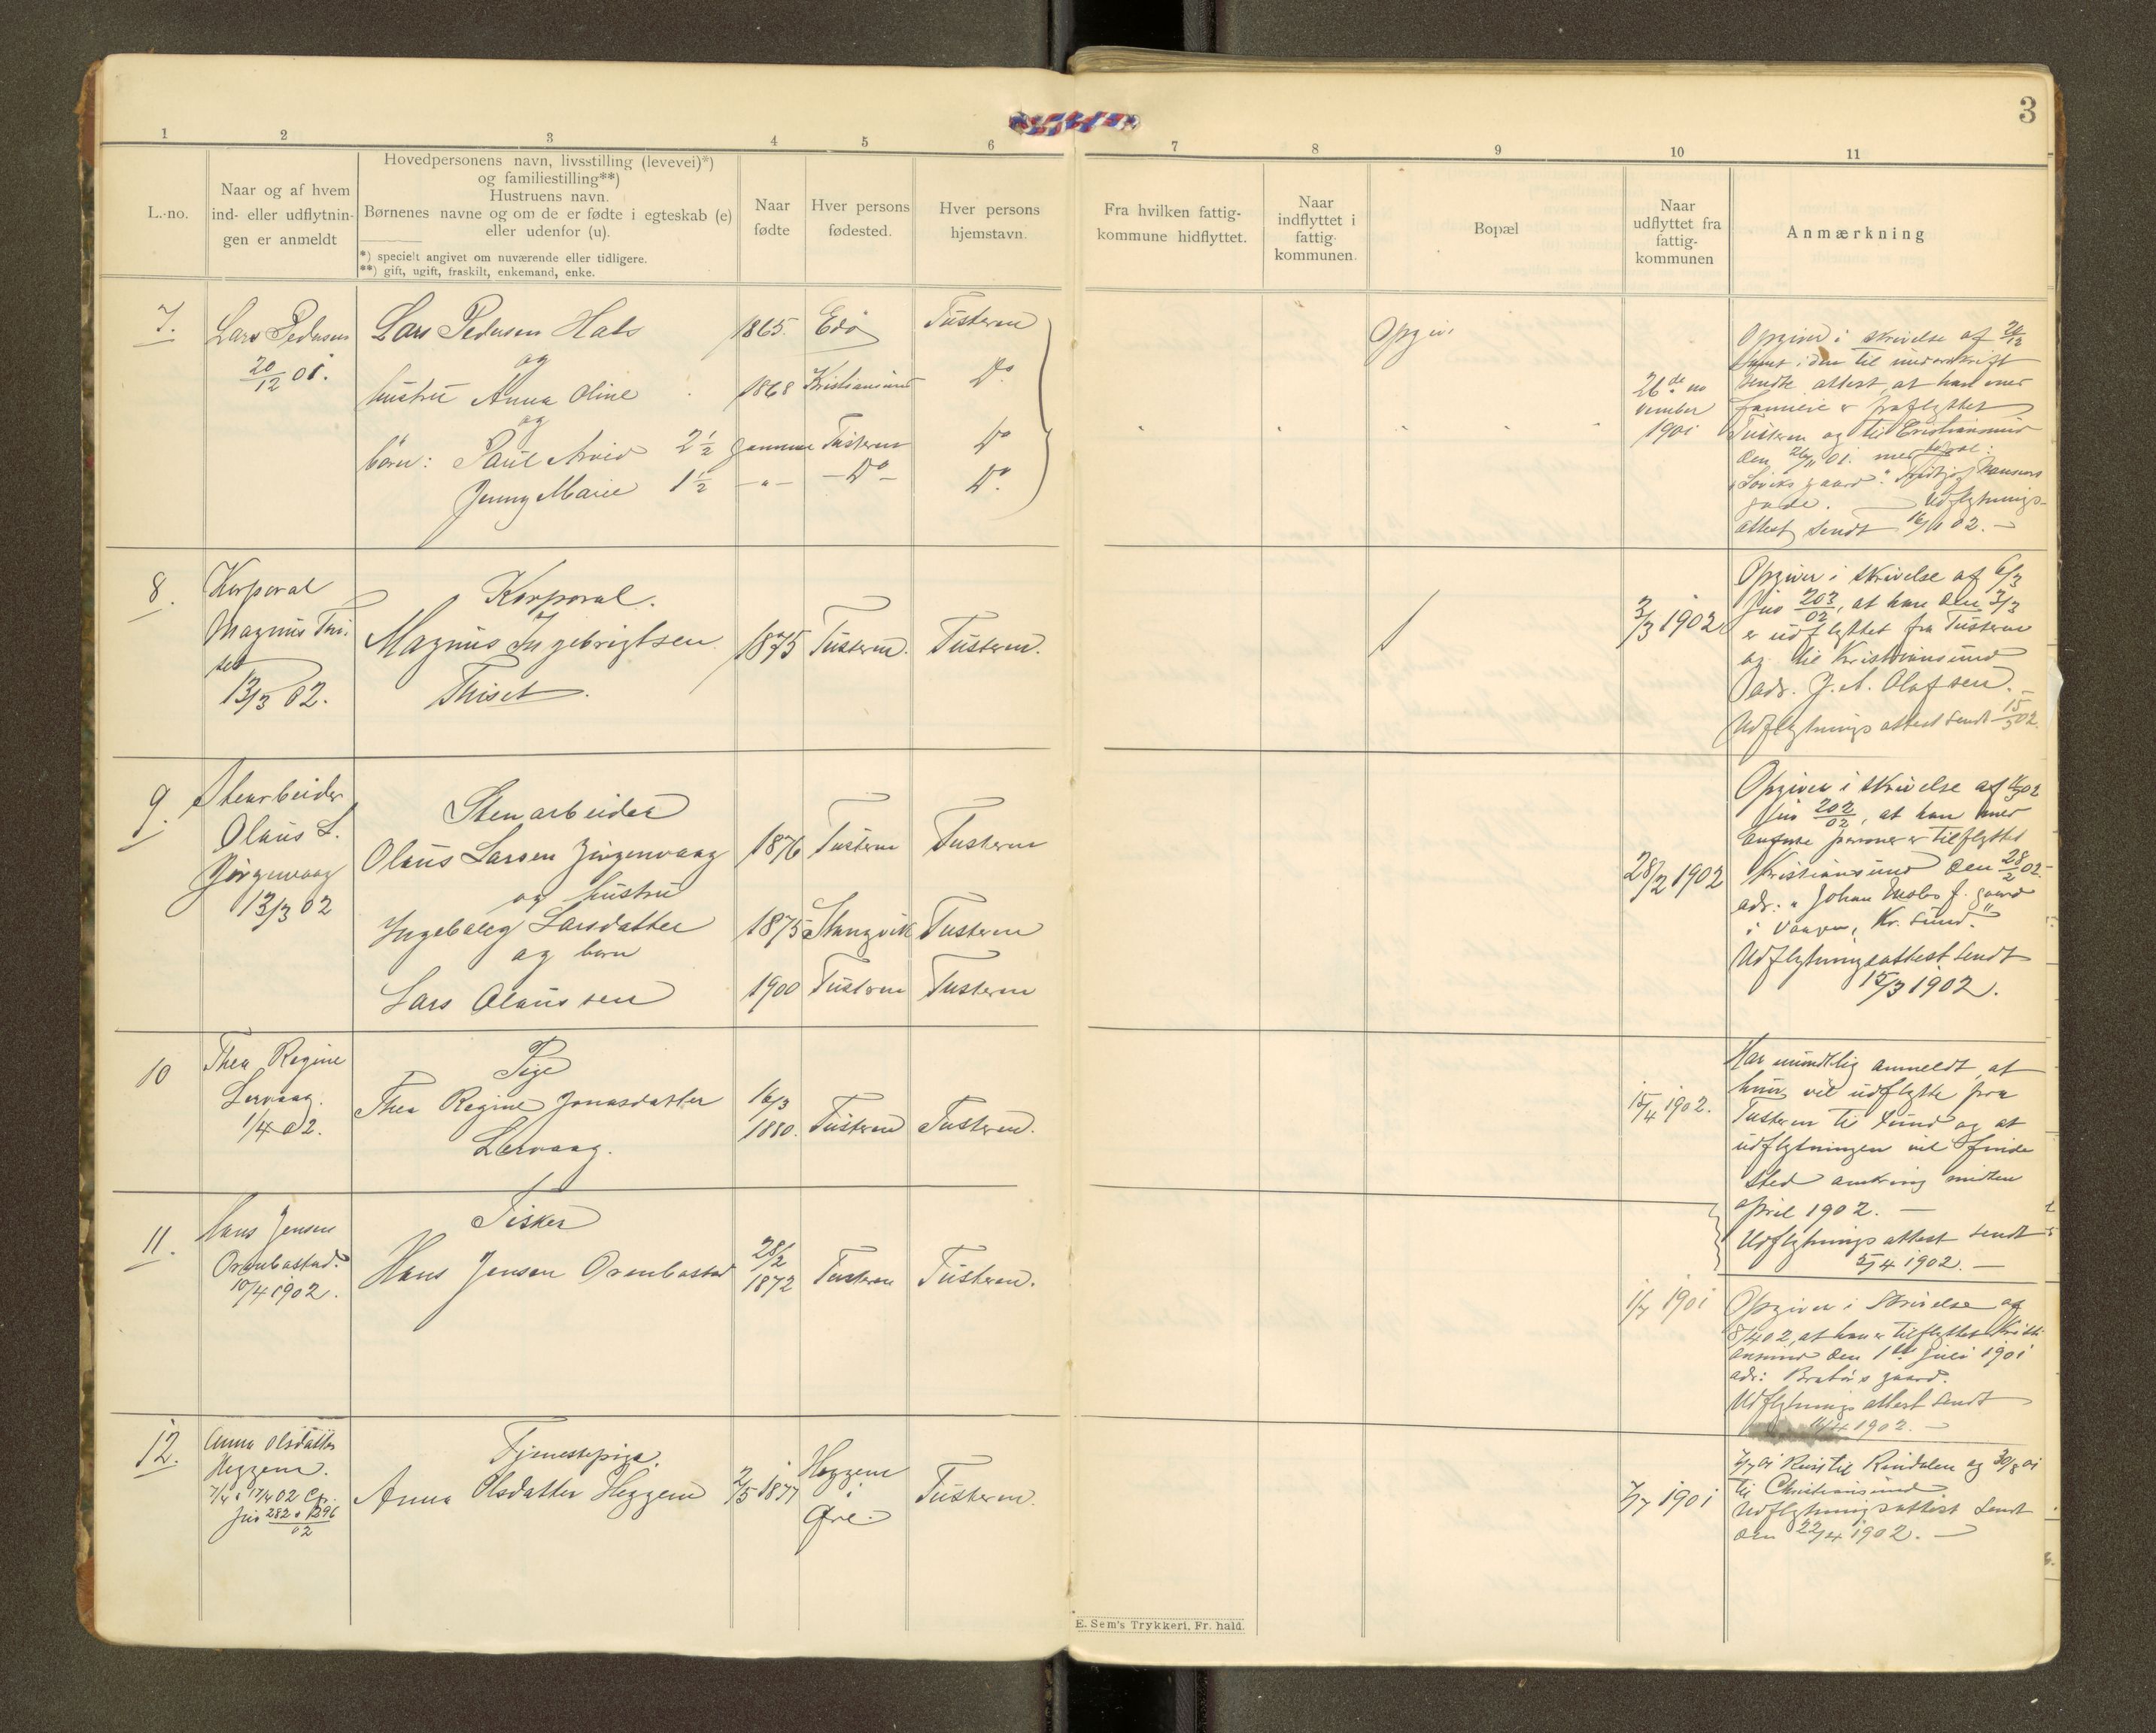 3
1 2 3 4 5 6 7 8 9 10 11
L.-no.
Naar og af hvem
ind- eller udflytnin-
gen er anmeldt
Hovedpersonens navn, livsstilling (levevei)*)
og familiestilling**)
Hustruens navn.
Børnenes navne og om de er fødte i egteskab (e)
eller udenfor (u).
*) specielt angivet om nuværende eller tidligere.
**) gift, ugift, fraskilt, enkemand, enke.
Naar
fødte
Hver persons
fødested.
Hver persons
hjemstavn.
Fra hvilken fattig-
kommune hidflyttet.
Naar
indflyttet i
fattig-
kommunen.
Bopæl
Naar
udflyttet fra
fattig-
kommunen
Anmærkning
7.
Lars Pedersen
20/12 01.
Lars Pedersen Hals
og
hustru Anna Oline
og
børn: Paul Arvid 2½
Jenny Marie 1½
1865.
1868
gamme
-"-
Edø
Kristiansund
Tusteren
-Do-
Tusteren
Do.
Do
Do.
Opgiv.
26de no
vember
1901
Opgiver i skrivelse af 20/12
samt i den til underskrift
sendte attest, at han med
familie er fraflyttet
Tusteren og til Cristiansund
den 26/11 01. med bopæl:
"Løviks gaard" Fridtjof Nansens
gade. Udflytnings-
attest sendt 16/1 02. —
8.
Korporal
Magnus Thi-
set
13/3 02.
Korporal.
Magnus Ingebrigtsen
Thiset.
1875
Tusteren.
Tusteren.
3/3 1902
Opgiver i skrivelse af 6/3
Jno 203/02, at han den 3/3
er udflyttet fra Tusteren
og til Kristiansund
adr. J. A. Olafsen. —
Udflytnings attest sendt 15/3 02.
9.
Stenarbeider
Olaus L.
Jørgenvaag
13/3 02
Stenarbeider
Olaus Larsen Jørgenvaag
og hustru
Ingeborg Larsdatter
og børn
Lars Olaussen
1876
1875
1900
Tusteren
Stangvik
Tusteren
Tusteren
Tusteren
Tusteren
28/2 1902
Opgiver i skrivelse af 02
Jno 202/02, at han med
anførte personer er tilflyttet
Kristiansund den 28/2 02.
adr: "Johan gaard
i Vaagen, Kr. sund."
Udflytningsattest sendt
15/3 1902.
10
Thea Regine
Lervaag.
1/4 02.
Pige
Thea Regine Jonasdatter
Lervaag.
16/3
1880.
Tusteren
Tusteren.
15/4 1902.
Har mundtlig anmeldt, at
hun vil udflytte fra
Tusteren til sund og at
udflytningen vil finde
sted omkring midten
april 1902. —
Udflytnings attest sendt
5/4 1902. —
11.
Hans Jensen
Orenbostad.
10/4 1902.
Fisker
Hans Jensen Orenbostad
28/2
1872
Tusteren
Tusteren.
1/7 1901
Opgiver i Skrivelse af
8/4 02, at han er tilflyttet Kristi-
ansund den 1ste juli 1901
adr: gaard.
Udflytnings attest sendt
1902. —
12.
Anna Olsdatter
Heggem.
7/4 & 17/4 02 Cfr.
Jno 282 & 296
02
Tjenestepige.
Anna Olsdatter Heggem
2/5 1877
Heggem
i
Øre.
Tusteren.
7/7 1901
7/7 01 Reist til Rindalen og 30/8 01
til Christiansund
Udflytningsattest sendt
den 22/4 1902. —
E. Sem's Trykkeri, Fr. hald.